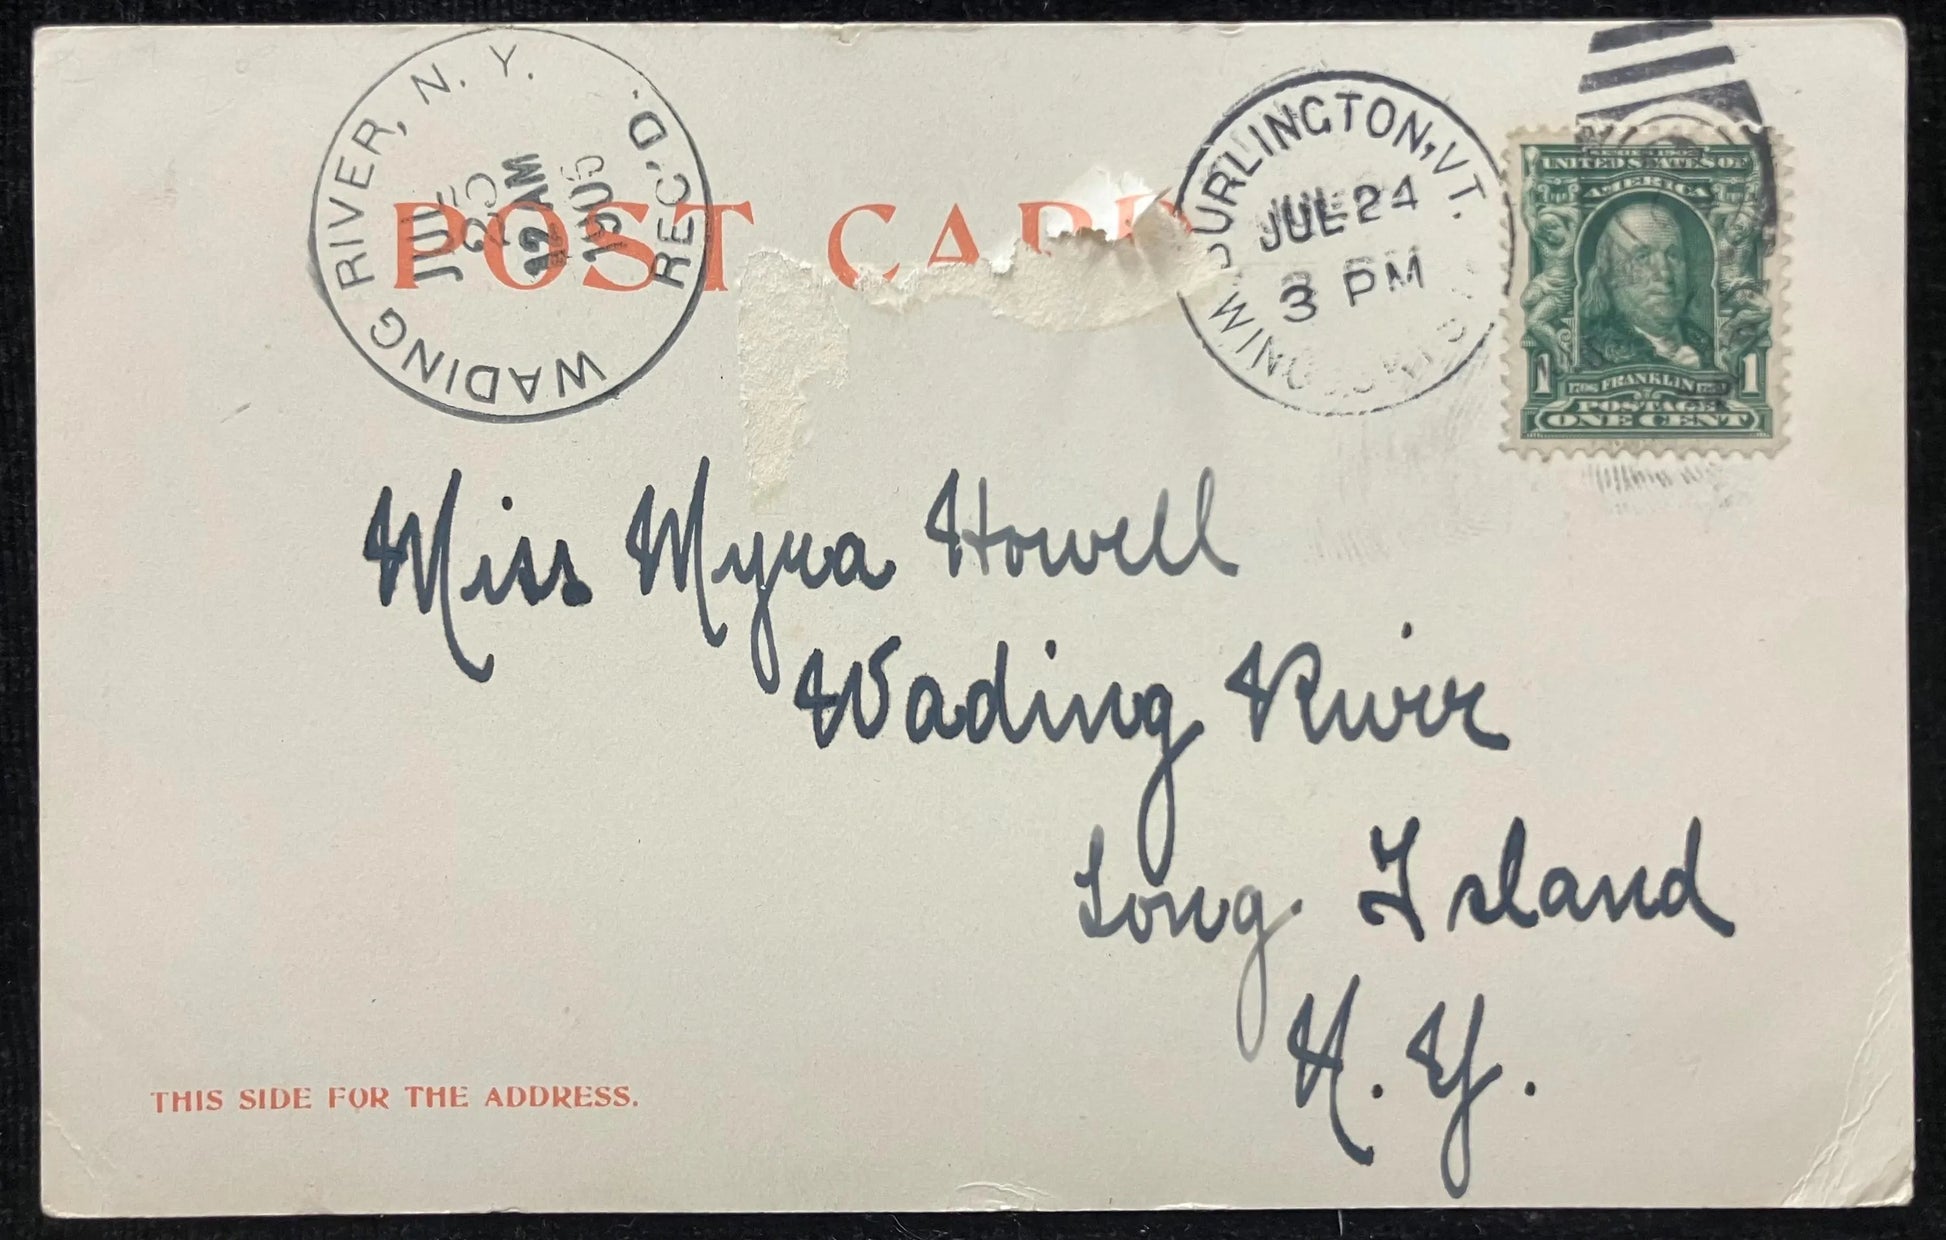 WADING RIVER, N. Y. REC'D.
JUL
25
12 AM
1905
POST CARD
BURLINGTON, VT.
JUL 24
3 PM
UNITED STATES OF
AMERICA
1 1
FRANKLIN
POSTAGE
ONE CENT
Miss Myra Howell
Wading River
Long Island
N. Y.
THIS SIDE FOR THE ADDRESS.